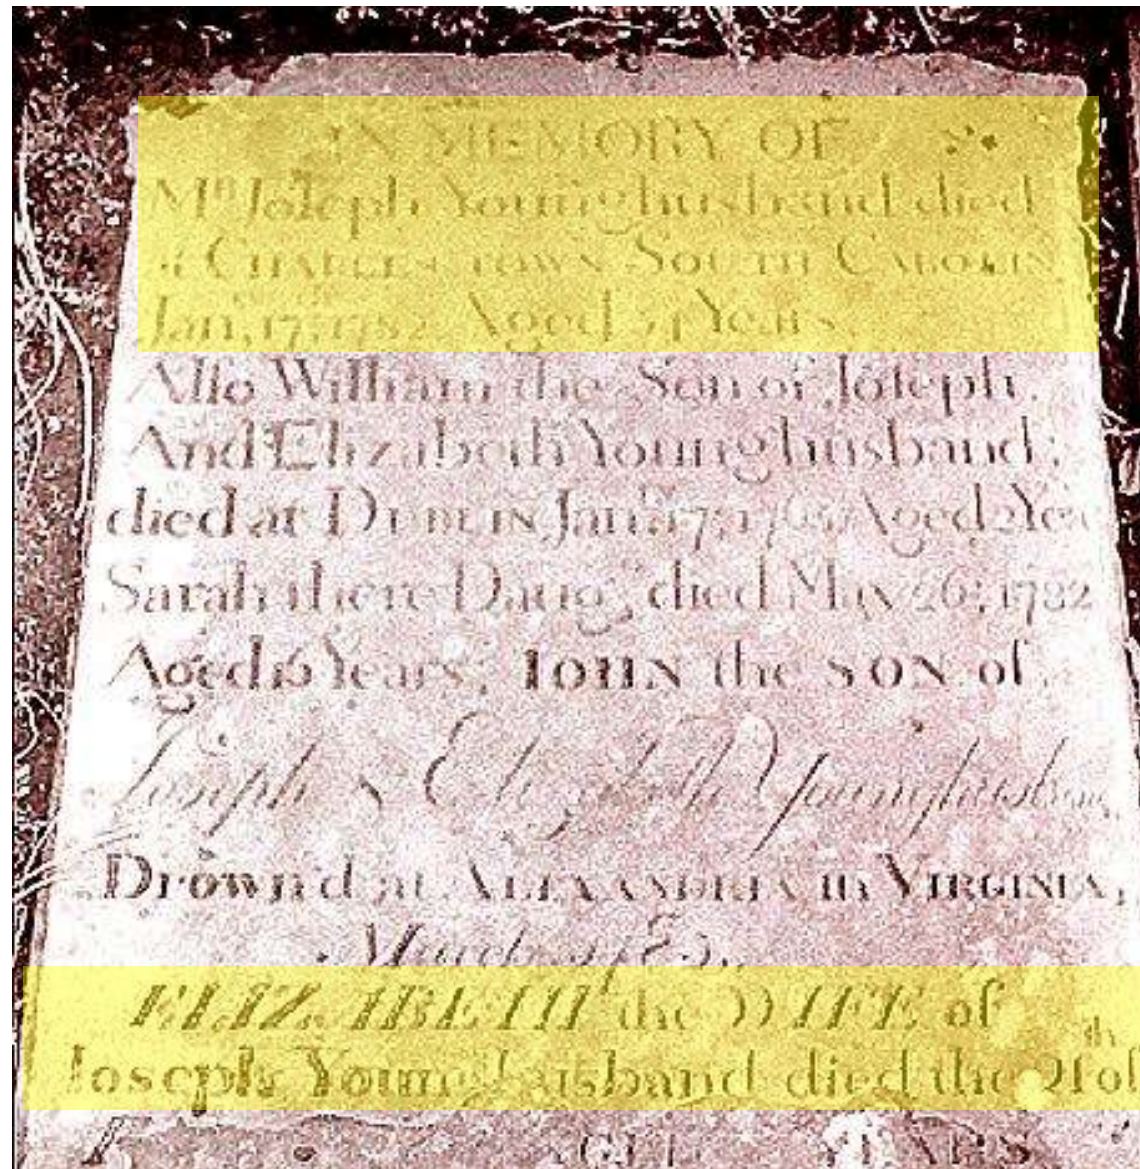 IN MEMORY OF
Mr Joseph Younghusband died
at CHARLESTOWN SOUTH CAROLIN
Jan, 17, 1782 Aged 54 Years,
Also William the Son of Joseph,
And Elizabeth Younghusband;
died at DUBLIN, Jan. 17, Aged 2 Yea
Sarah there Daug. died May 26; 1782
Aged 16 Years; IOHN the SON of
Joseph & Elizabeth Younghusband
Drown'd at ALEXANDRIA in VIRGINIA,
March
ELIZABETH the WIFE of
Joseph Younghusband died the of
YEARS